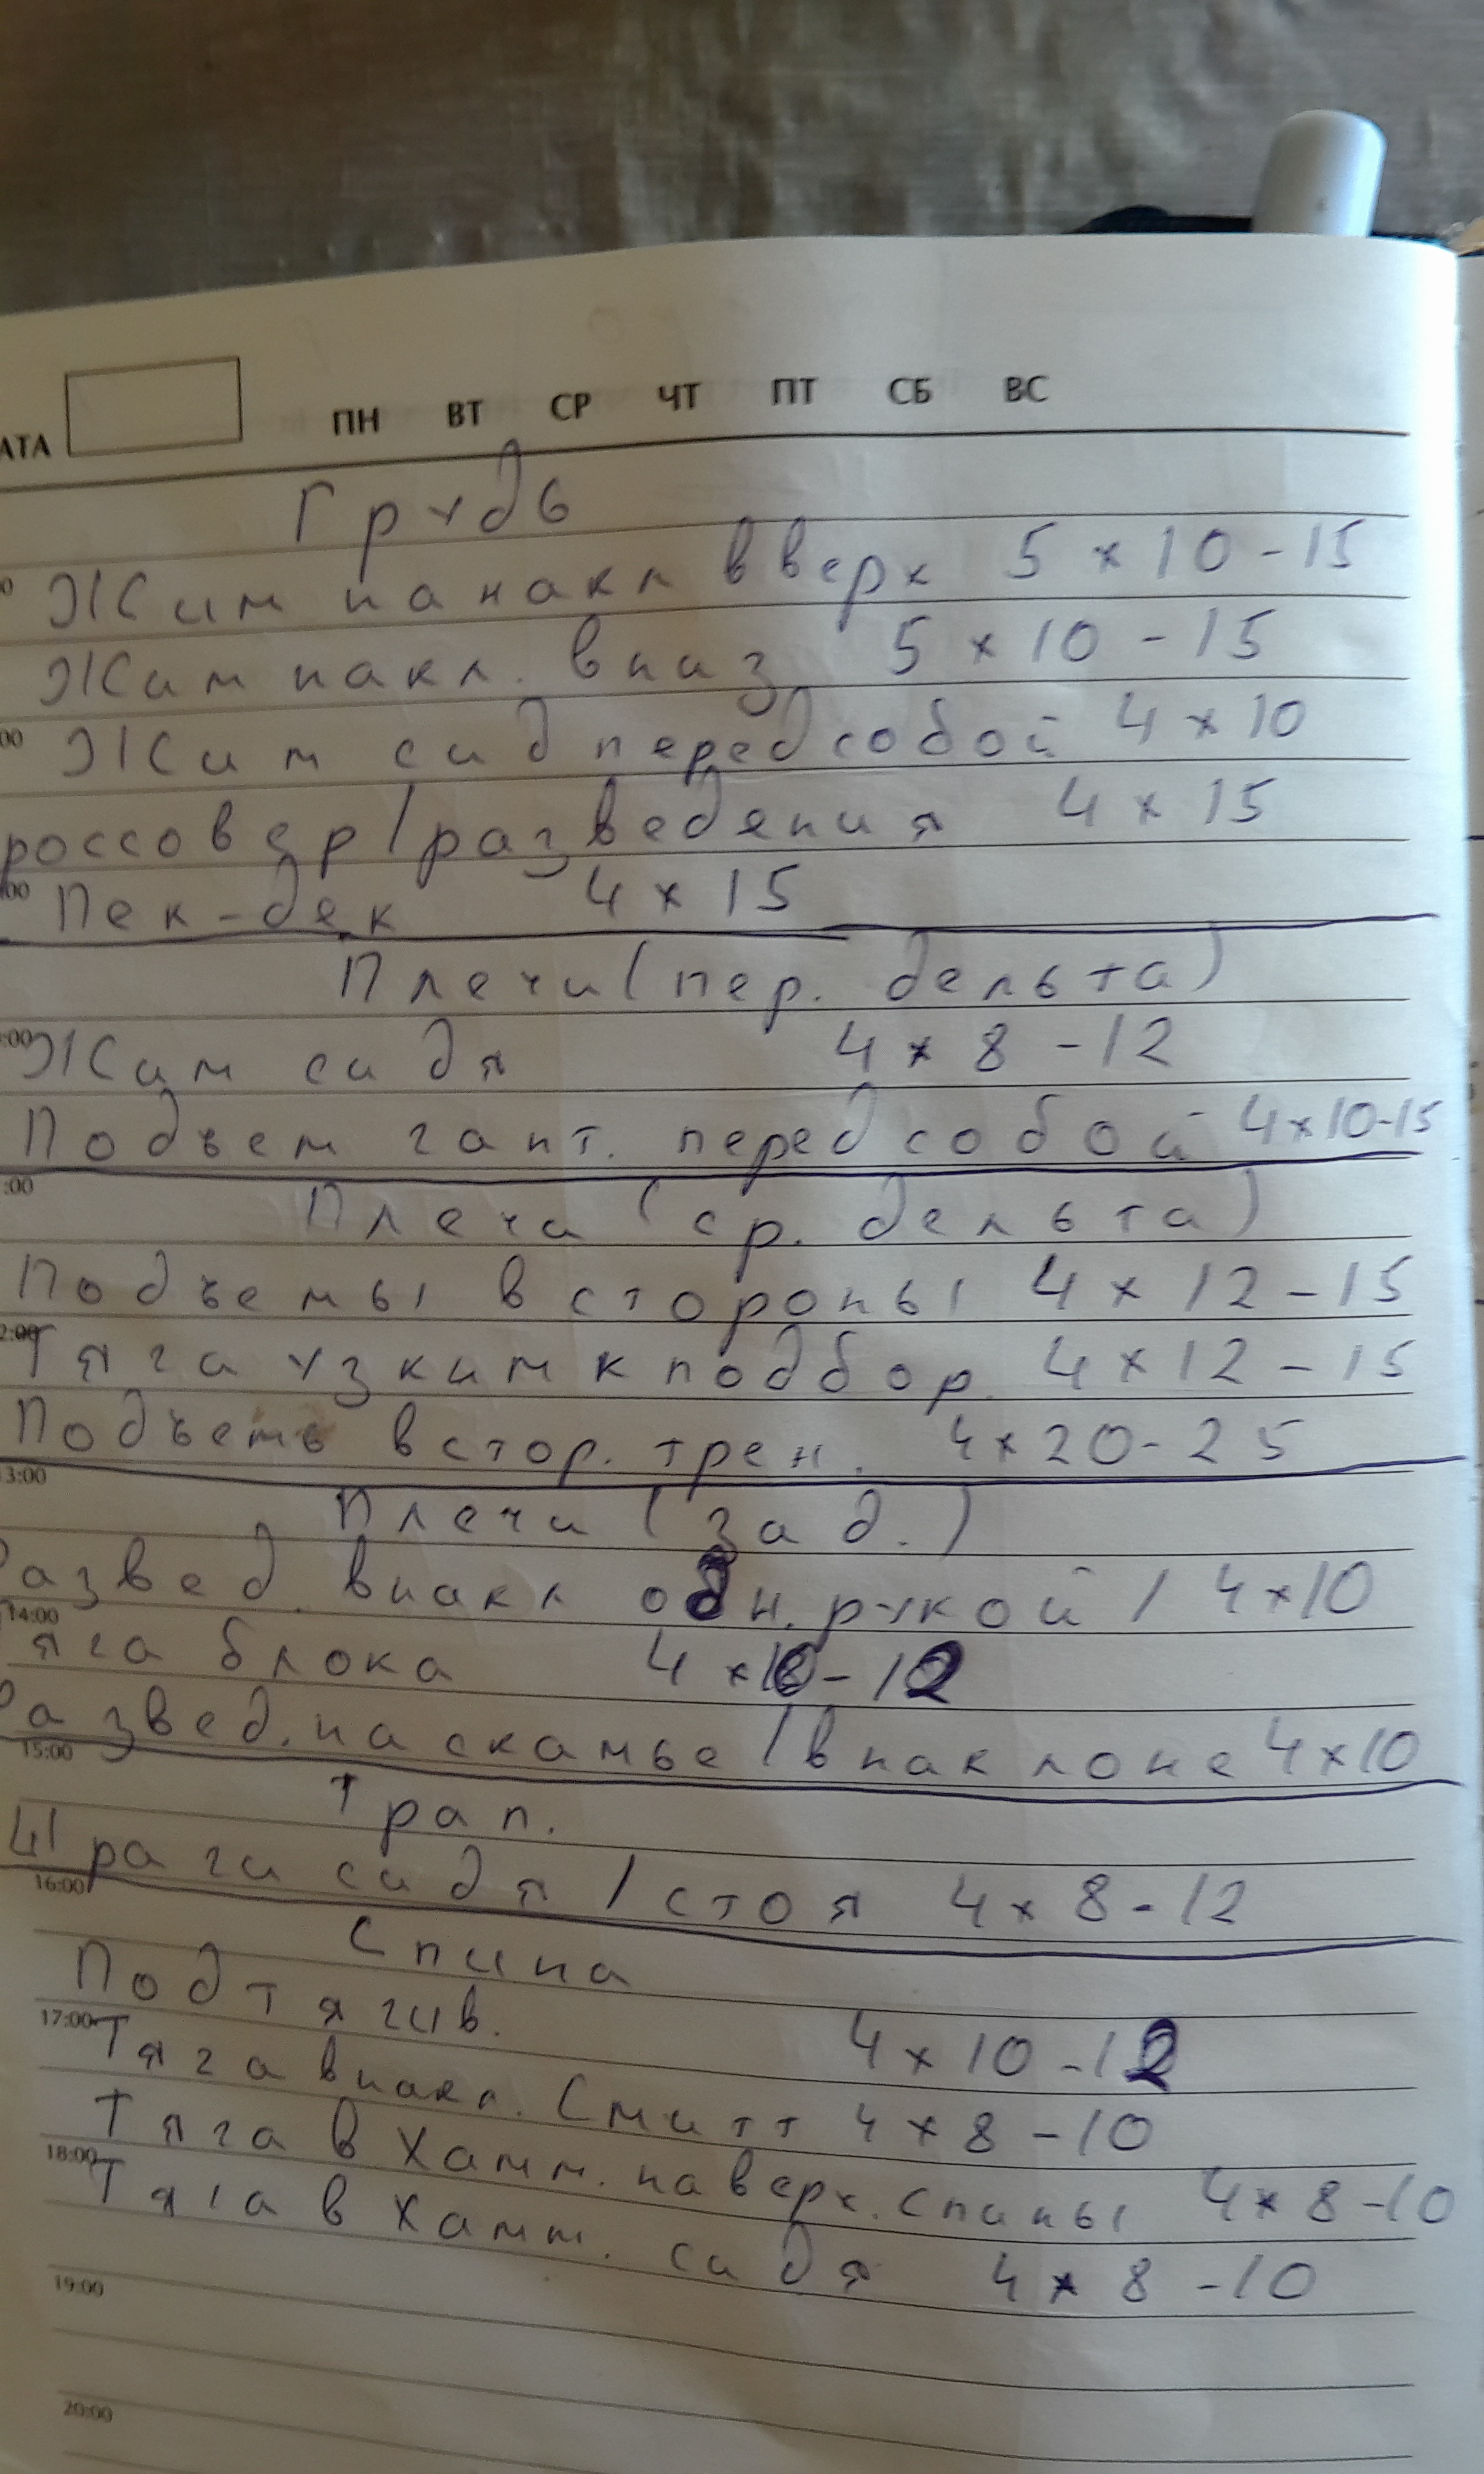 АТА ПН ВТ СР ЧТ ПТ СБ ВС
Грудь
Жим на накл вверх 5 x 10 - 15
Жим накл. вниз 5 x 10 - 15
00 Жим сид перед собой 4 x 10
россовер/разведения 4 x 15
00 Пек-дек 4 x 15
Плечи (пер. дельта)
:00 Жим сидя 4 x 8 - 12
Подъем гант. перед собой 4 x 10-15
:00 Плечи (ср. дельта)
Подъемы в стороны 4 x 12 - 15
2:00 Тяга узким к подбор. 4 x 12 - 15
Подъемы в стор. трен. 4 x 20 - 25
3:00
Плечи (зад.)
Развед. в накл одн. рукой / 4 x 10
14:00 Тяга блока 4 x 10 - 12
Развед. на скамье / в наклоне 4 x 10
15:00
Трап.
Шраги сидя / стоя 4 x 8 - 12
16:00
Спина
Подтягив. 4 x 10 - 12
17:00 Тяга в накл. Смитт 4 x 8 - 10
Тяга в Хамм. на верх. спины 4 x 8 - 10
18:00 Тяга в Хамм. сидя 4 x 8 - 10
19:00
20:00